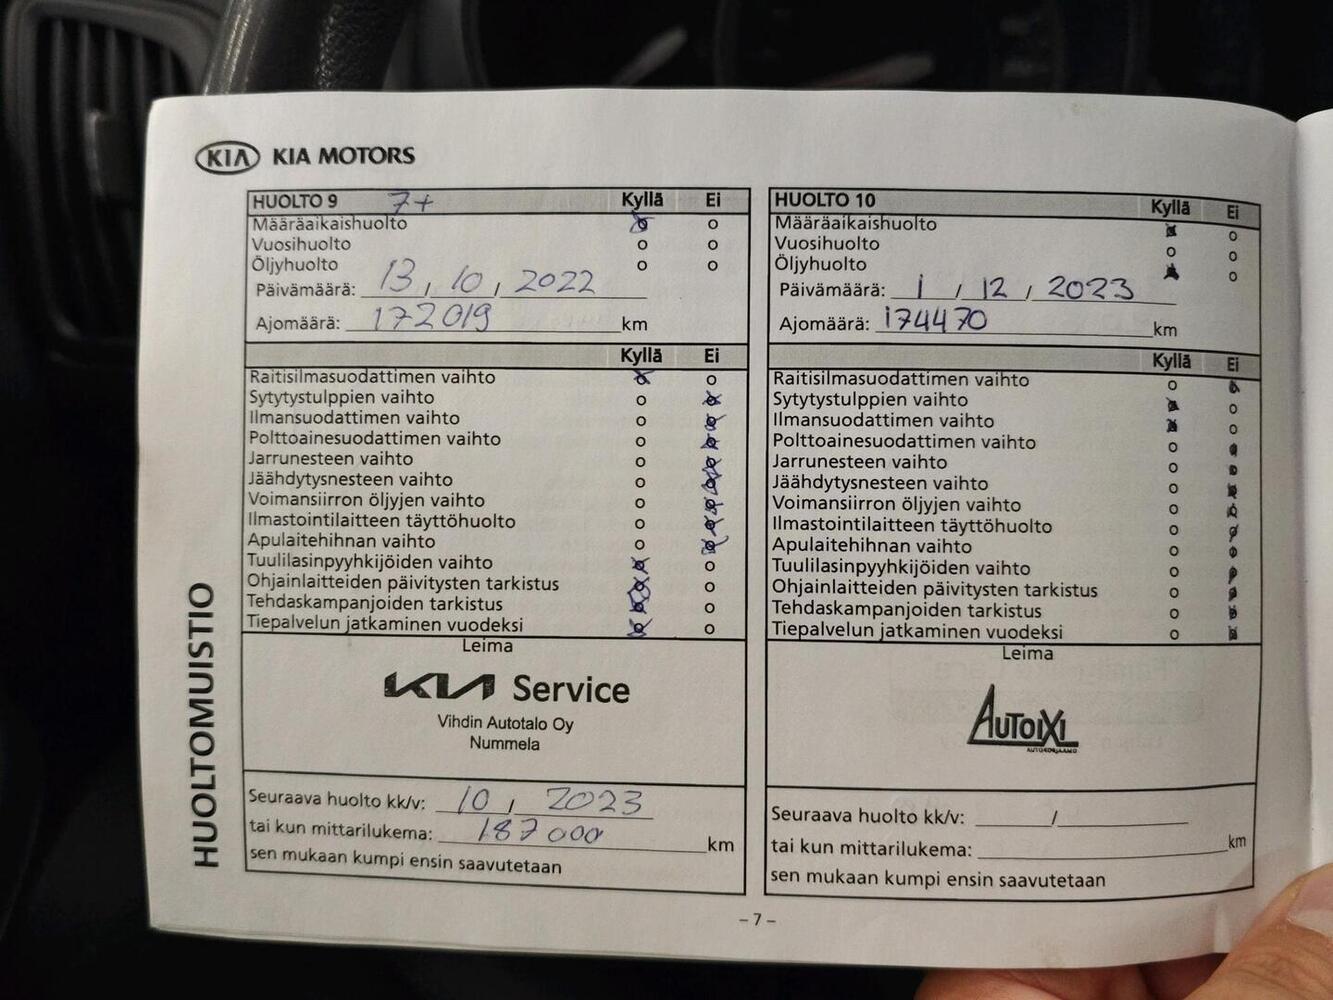 KIA KIA MOTORS
HUOLTOMUISTIO
HUOLTO 9 7+ Kyllä Ei
Määräaikaishuolto
Vuosihuolto
Öljyhuolto
Päivämäärä: 13, 10, 2022
Ajomäärä: 172019 km
Kyllä Ei
Raitisilmasuodattimen vaihto
Sytytystulppien vaihto
Ilmansuodattimen vaihto
Polttoainesuodattimen vaihto
Jarrunesteen vaihto
Jäähdytysnesteen vaihto
Voimansiirron öljyjen vaihto
Ilmastointilaitteen täyttöhuolto
Apulaitehihnan vaihto
Tuulilasinpyyhkijöiden vaihto
Ohjainlaitteiden päivitysten tarkistus
Tehdaskampanjoiden tarkistus
Tiepalvelun jatkaminen vuodeksi
Leima
KIA Service
Vihdin Autotalo Oy
Nummela
Seuraava huolto kk/v: 10, 2023
tai kun mittarilukema: 187000 km
sen mukaan kumpi ensin saavutetaan
HUOLTO 10 Kyllä Ei
Määräaikaishuolto
Vuosihuolto
Öljyhuolto
Päivämäärä: 1 / 12 / 2023
Ajomäärä: 174470 km
Kyllä Ei
Raitisilmasuodattimen vaihto
Sytytystulppien vaihto
Ilmansuodattimen vaihto
Polttoainesuodattimen vaihto
Jarrunesteen vaihto
Jäähdytysnesteen vaihto
Voimansiirron öljyjen vaihto
Ilmastointilaitteen täyttöhuolto
Apulaitehihnan vaihto
Tuulilasinpyyhkijöiden vaihto
Ohjainlaitteiden päivitysten tarkistus
Tehdaskampanjoiden tarkistus
Tiepalvelun jatkaminen vuodeksi
Leima
AUTOIXI
AUTOKORJAAMO
Seuraava huolto kk/v: /
tai kun mittarilukema: km
sen mukaan kumpi ensin saavutetaan
– 7 –